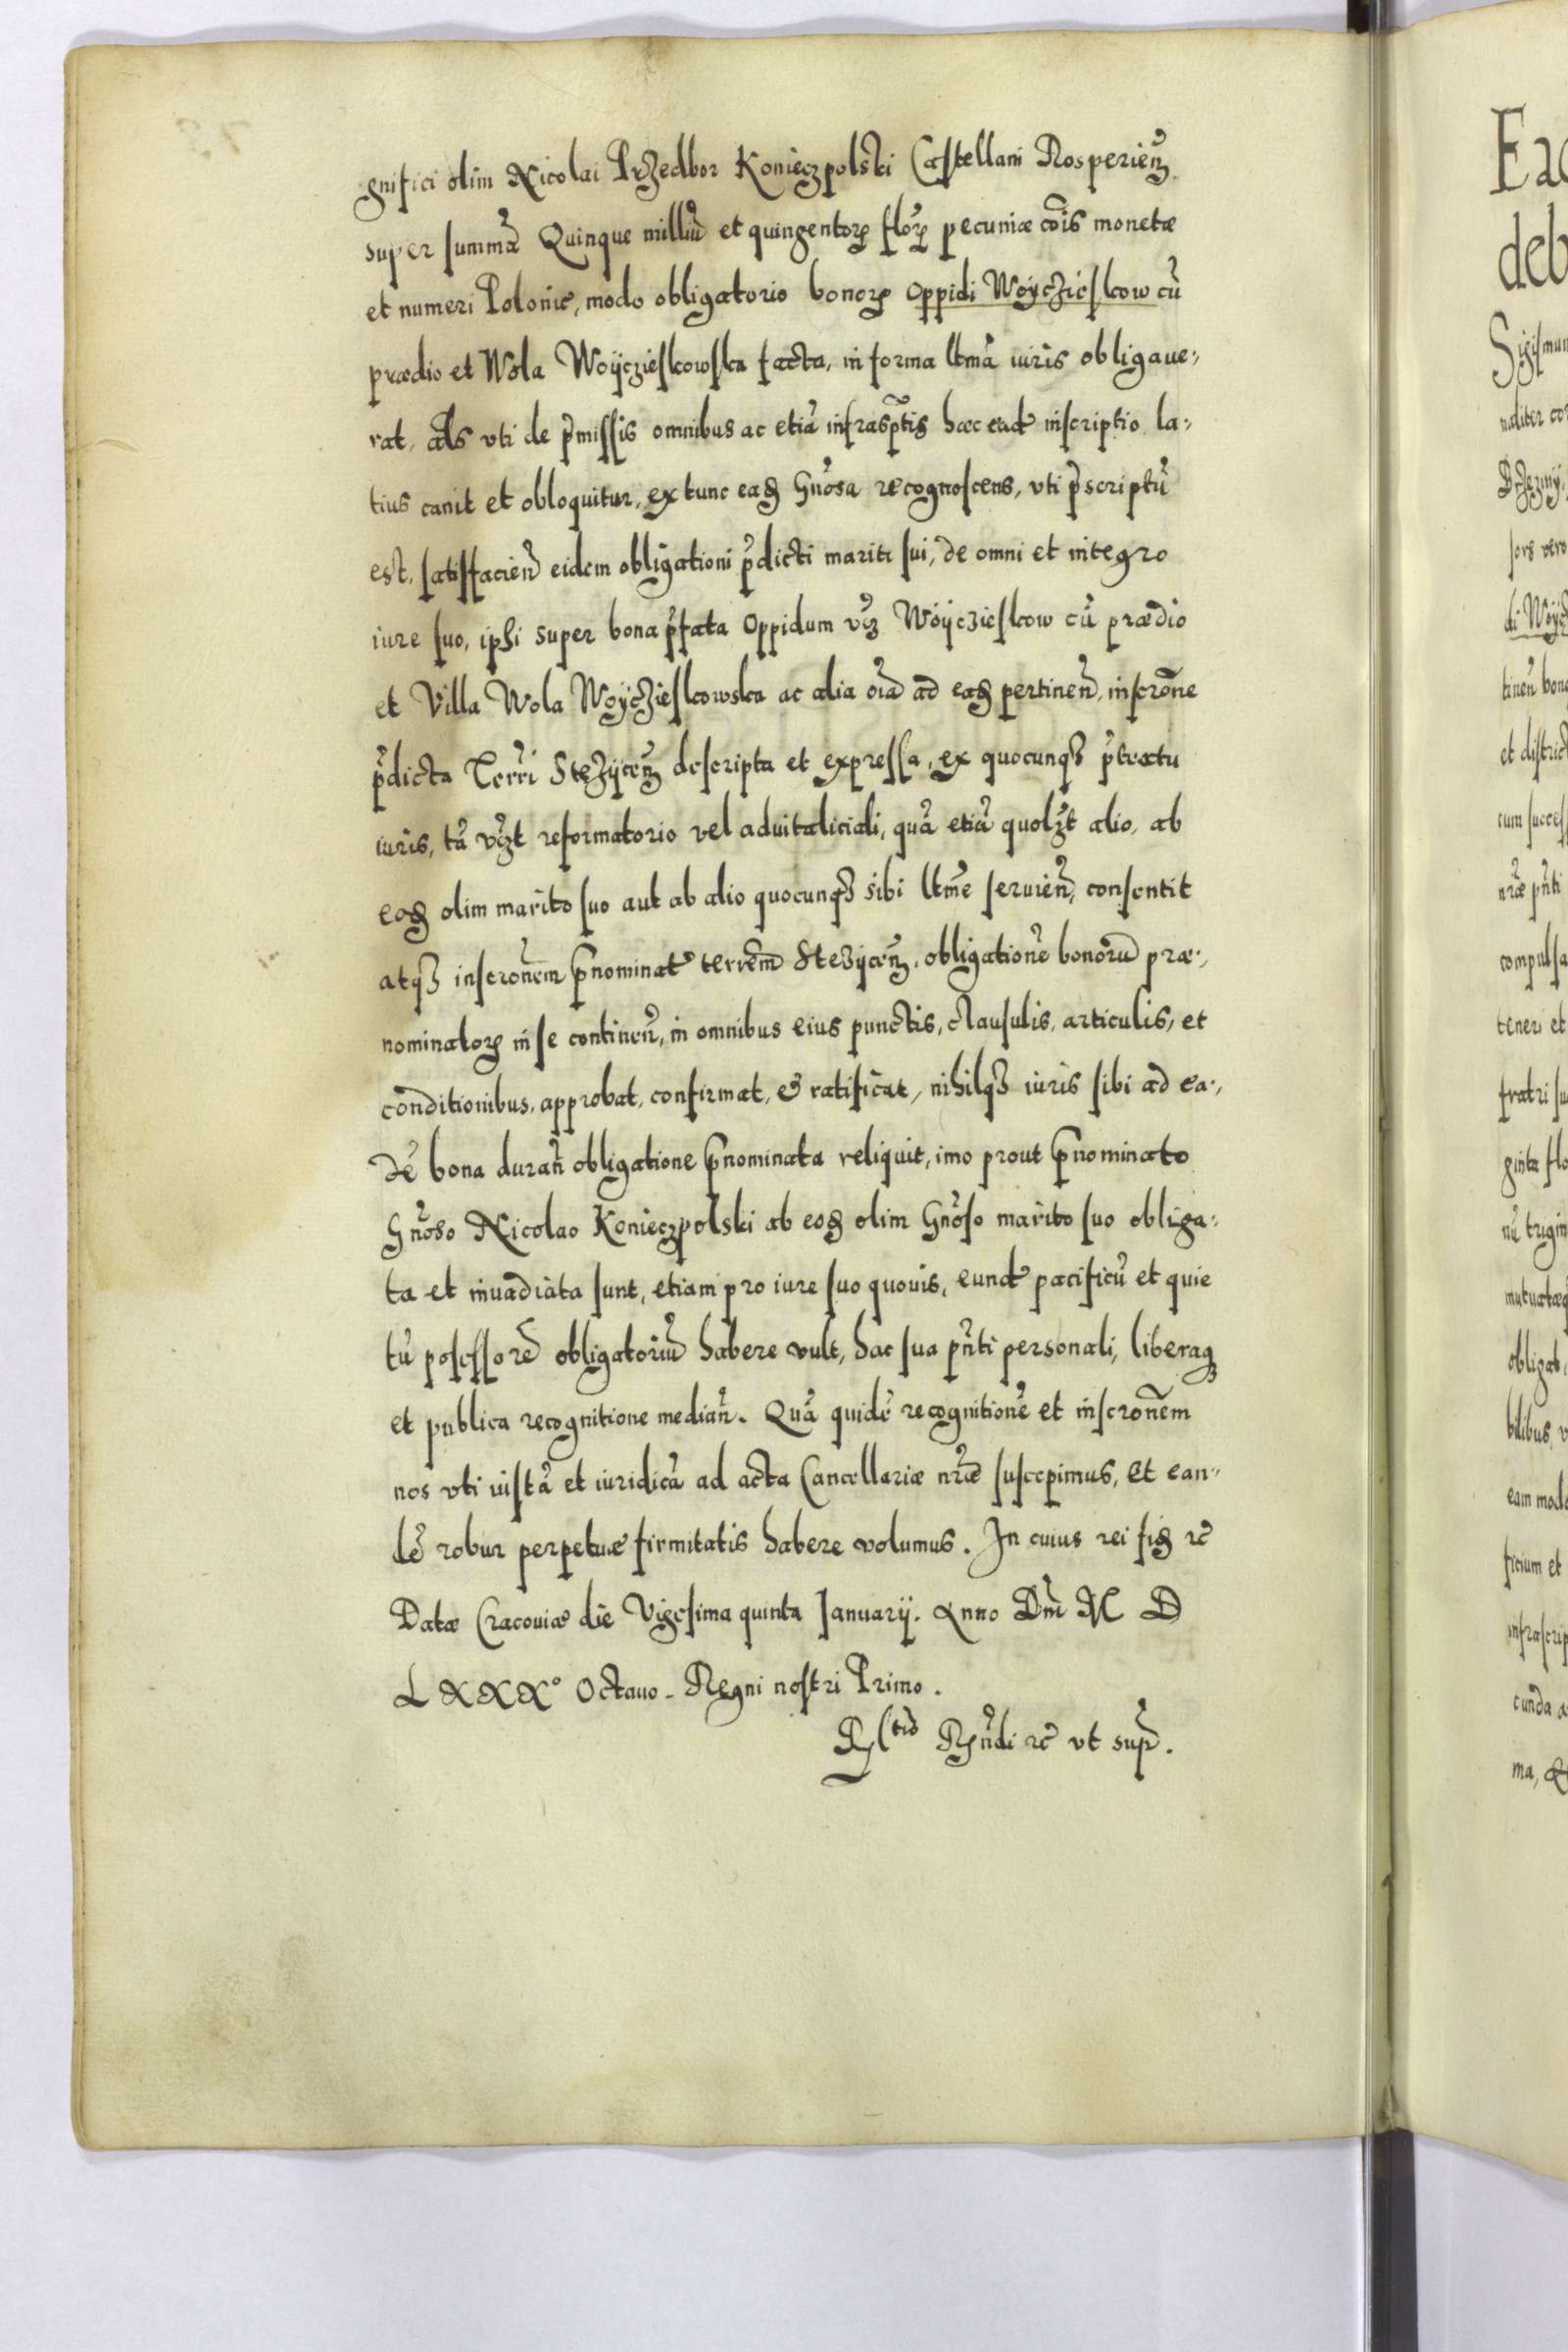 gnifici olim Nicolai Przedbor Konieczpolski Castellani Rosperien̄
super summā Quinque milliū et quingentoꝝ floꝝ pecuniæ cōis monetæ
et numeri Poloniæ, modo obligatorio bonoꝝ oppidi Woyczieſkow cū
prædio et Wola Woyczieſkowſka facta, in forma ltmā iuris obligaue-,
rat, als vti de p̄miſſis omnibus ac etiā infrasp̄tis hæc ead̄ inſcriptio la-,
tius canit et obloquitur, ex tunc eaꝫ Gn̄osa recognoſcens, vti p̄scriptū
est, ſatisfacien̄ eidem obligationi p̄dicti mariti ſui, de omni et integro
iure ſuo, ipſi super bona p̄fata oppidum vꝫ Woyczieſkow cū prædio
et Villa Wola Woyczieſkowska ac alia oīa ad eaꝫ pertinen̄, inſcrōne
p̄dicta Terrī Stezycen̄ deſcripta et expreſſa, ex quocunqꝫ p̄textu
iuris, tā vꝫt reformatorio vel aduitaliciali, quā etiā quolꝫt alio, ab
eoꝫ olim marito ſuo aut ab alio quocunqꝫ sibi ltmē seruien̄, conſentit
atqꝫ inſcronēm p̄nominat̄ terrēm Stezycen̄, obligationē bonorū præ-,
nominatoꝝ in ſe continen̄, in omnibus eius punctis, clauſulis, articulis, et
conditionibus, approbat, confirmat, & ratificat, nihilqꝫ iuris ſibi ad ea-,
dē bona durañ obligatione p̄nominata reliquit, imo prout p̄nominato
Gn̄oso Nicolao Konieczpolski ab eoꝫ olim Gn̄oſo marito ſuo obliga-,
ta et inuadiata ſunt, etiam pro iure ſuo quouis, eund̄ pacificū et quie
tū poſeſſorē obligatoriū habere vult, hac ſua pn̄ti personali, liberaqꝫ
et publica recognitione median̄. Quā quidē recognitionē et inſcronēm
nos vti iuſtā et iuridicā ad acta Cancellariæ nr̄æ ſuſcepimus, et ean-,
dē robur perpetuæ firmitatis habere volumus. In cuius rei fiꝫ ꝛc̄
Datæ Cracouiæ die Vigeſima quinta Ianuarij. Anno Dn̄i M D
LXXXº Octauo. Regni noſtri Primo.
R ndi ꝛc̄ vt supr̄.
Sigiſmun
compulſa
teneri et
fratri ſu
obligat
eam mod
ficium et
infraſcrip